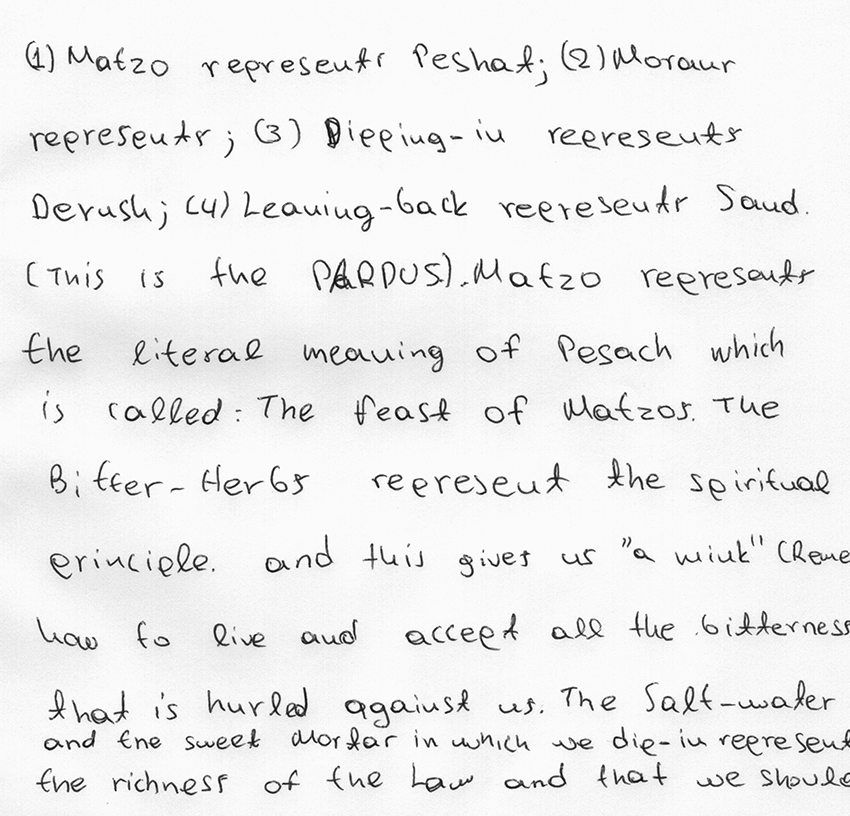 (1) Matzo represents Peshat; (2) Moraur
represents; (3) Dipping-in represents
Derush; (4) Leaning-back represents Saud.
(This is the PARDUS). Matzo represents
the literal meaning of Pesach which
is called: The feast of Matzos. The
Bitter-Herbs represent the spiritual
principle. and this gives us "a wink" (Reme
how to live and accept all the bitterness
that is hurled against us. The Salt-water
and the sweet Mortar in which we dip-in represent
the richness of the Law and that we should